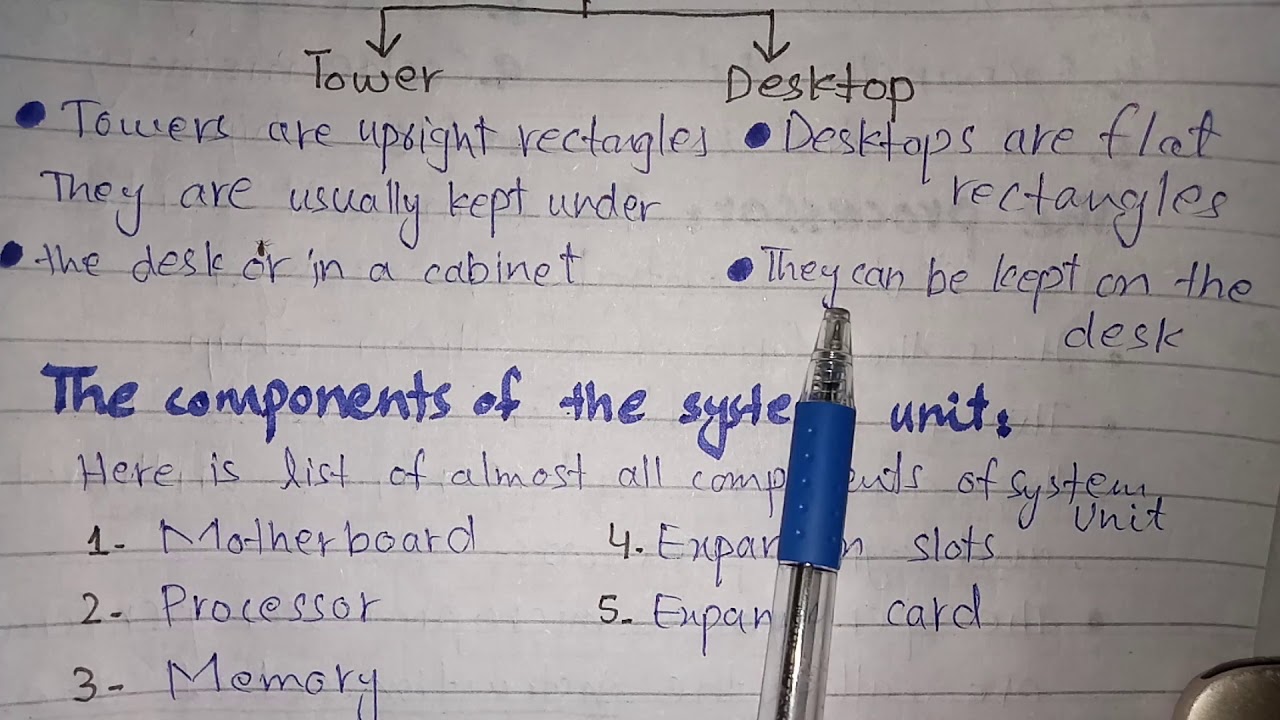 Tower
Desktop
Towers are upright rectangles
They are usually kept under
the desk or in a cabinet
Desktops are flat
rectangles
They can be kept on the
desk
The components of the unit:
Here is list of almost all of system
Unit
1- Motherboard
2- Processor
3- Memory
4. slots
5. card